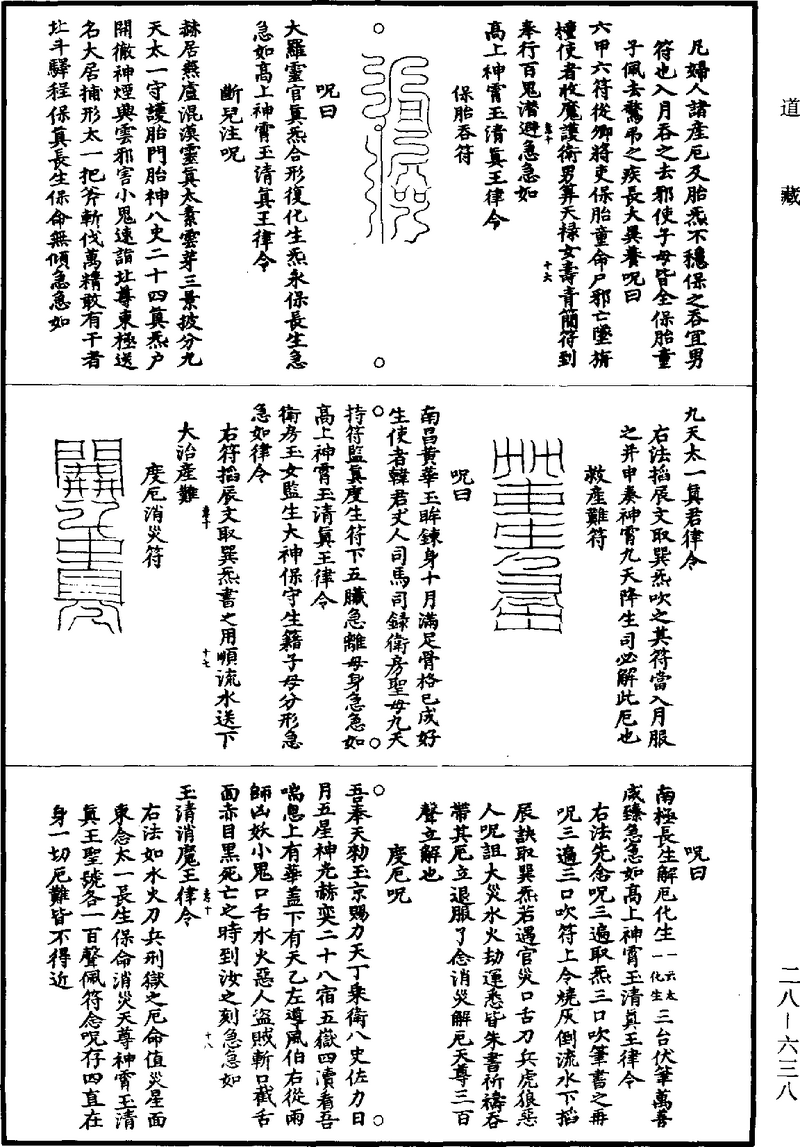 道藏
凡婦人諸產厄及胎炁不穩保之吞宜男
符也入月吞之去邪使子母皆全保胎童
子佩去驚弔之疾長大異養呪曰
六甲六符從鄉將吏保胎童命尸邪亡墜旃
橦使者收魔護衛男算天祿女壽青簡符到
奉行百鬼潛避急急如
高上神霄玉清眞王律令
保胎吞符
呪曰
大羅靈官眞炁合形復化生炁永保長生急
急如高上神霄玉清眞王律令
斷兒注呪
赫居無廬混漠靈眞太素雲芽三景披分九
天太一守護胎門胎神八史二十四眞炁户
開徹神煙興雲邪害小鬼速詣北尊東極送
名大居捕形太一把斧斬伐萬精敢有干者
北斗驛程保眞長生保命無傾急急如
九天太一眞君律令
右法掐辰文取巽炁吹之其符當入月服
之并申奏神霄九天降生司必解此厄也
救產難符
呪曰
南昌黄華玉眸鍊身十月滿足骨格已成好
生使者韓君丈人司馬司錄衛房聖母九天
持符監眞度生符下五臟急離母身急急如
高上神霄玉清眞王律令
衛房玉女監生大神保守生籍子母分形急
急如律令
右符掐辰文取巽炁書之用順流水送下
大治產難
度厄消災符
呪曰
南極長生解厄化生一云太一化生三台伏筆萬善
咸臻急急如高上神霄玉清眞王律令
右法先念呪三遍取炁三口吹筆書之再
呪三遍三口吹符上令燒灰倒流水下掐
辰訣取巽炁若遇官災口舌刀兵虎狼惡
人呪詛大災水火劫運悉皆朱書祈禱吞
帶其厄立退服了念消災解厄天尊三百
聲立解也
度厄呪
吾奉天勑玉京賜力天丁乗衛八史佐力日
月五星神光赫奕二十八宿五嶽四瀆看吾
喘息上有華蓋下有天乙左導風伯右從雨
師凶妖小鬼口舌水火惡人盜賊斬口截舌
面赤目黑死亡之時到汝之刻急急如
玉清消魔王律令
右法如水火刀兵刑獄之厄命值災星面
東念太一長生保命消災天尊神霄玉清
眞王聖號各一百聲佩符念呪存四直在
身一切厄難皆不得近
二八－六三八